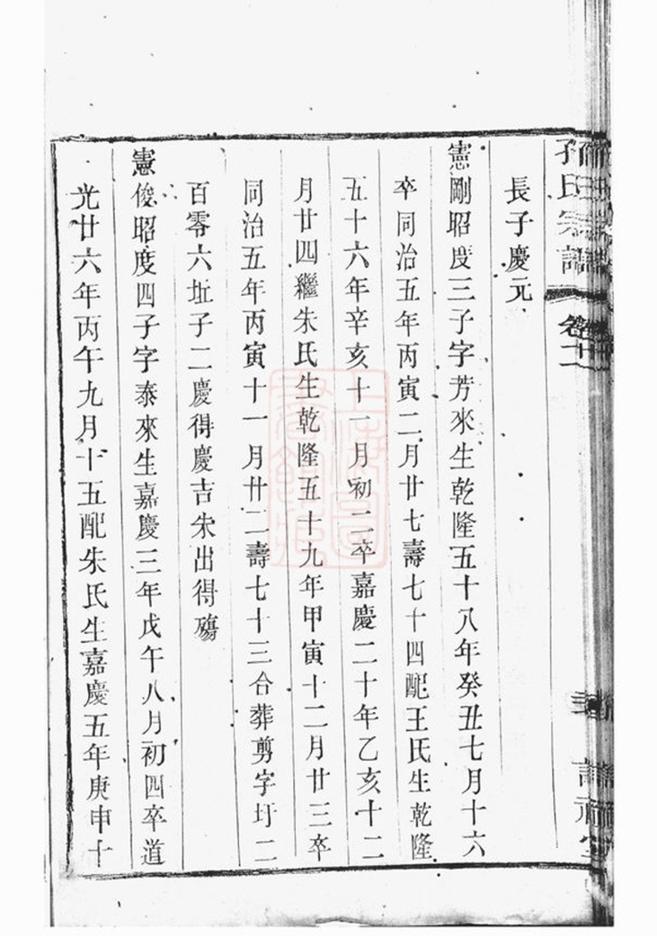 孫氏宗譜
卷十二
長子慶元
憲剛昭度三子字芳來生乾隆五十八年癸丑七月十六
卒同治五年丙寅二月廿七壽七十四配王氏生乾隆
五十六年辛亥十一月初二卒嘉慶二十年乙亥十二
月廿四繼朱氏生乾隆五十九年甲寅十二月廿三卒
同治五年丙寅十一月廿二壽七十三合葬剪字圩二
百零六坵子二慶得慶吉朱出得殤
憲俊昭度四子字泰來生嘉慶三年戊午八月初四卒道
光廿六年丙午九月十五配朱氏生嘉慶五年庚申十